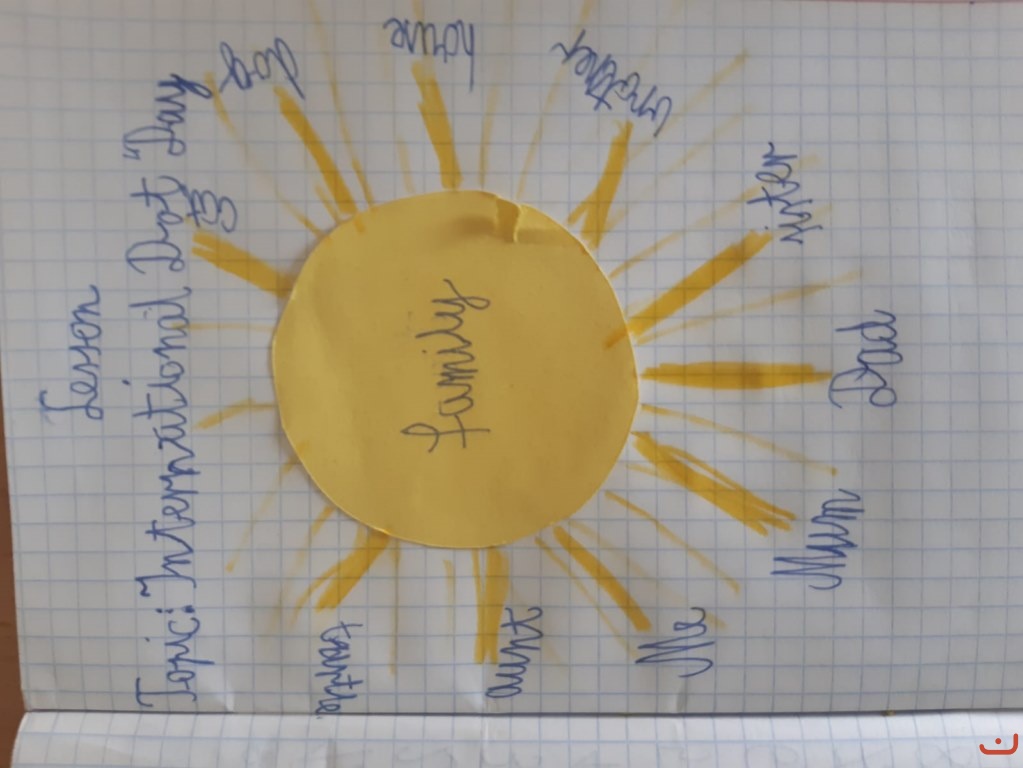 Lessen
Topic: International Dot "Day
dog
house
family
aunt
brother
Me
sister
Mum
Dad